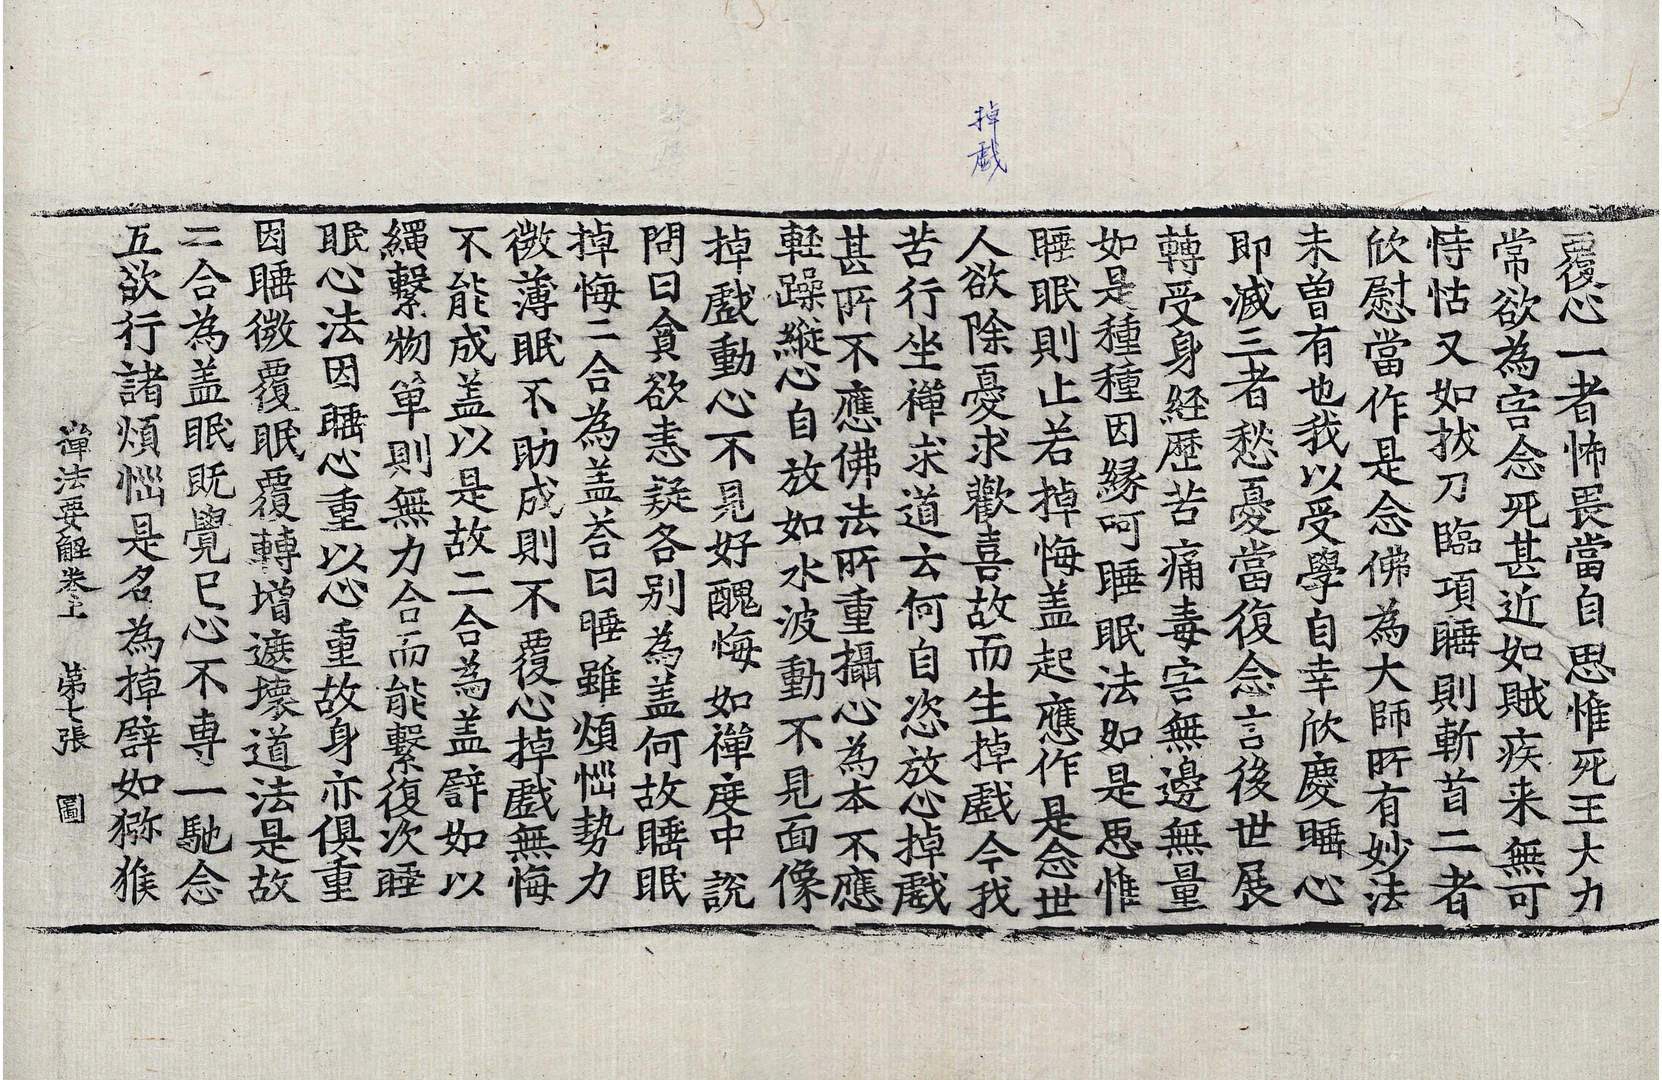 掉戲
覆心一者怖畏當自思惟死王大力
常欲為害念死甚近如賊疾来無可
恃怙又如拔刀臨項睡則斬首二者
欣慰當作是念佛為大師所有妙法
未曽有也我以受學自幸欣慶睡心
即滅三者愁憂當復念言後世展
轉受身経歷苦痛毒害無邊無量
如是種種因縁呵睡眠法如是思惟
睡眠則止若掉悔盖起應作是念世
人欲除憂求歡喜故而生掉戲今我
苦行坐禅求道云何自恣放心掉戲
甚所不應佛法所重攝心為本不應
輕躁縱心自放如水波動不見面像
掉戲動心不見好醜悔如禅度中説
問曰貪欲恚疑各别為盖何故睡眠
掉悔二合為盖荅曰睡雖煩惱勢力
微薄眠不助成則不覆心掉戲無悔
不能成盖以是故二合為盖譬如以
繩繫物單則無力合而能繫復次睡
眠心法因睡心重以心重故身亦俱重
因睡微覆眠覆轉增遮壞道法是故
二合為盖眠既覺已心不専一馳念
五欲行諸煩惱是名為掉譬如獼猴
禅法要解卷上 第七張 圖